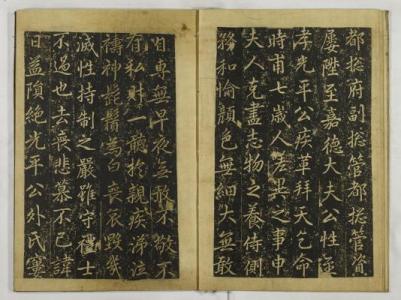 都揔府副揔管都揔管資
屢陞至嘉德大夫公性
孝先平公疾革拜天乞命
時甫七歲人咸異之事申
夫人克盡志物之養侍側
務和愉顏色無細大無敢
自專無早夜無敢不敬不
有私財一敢於親疾涕泣
禱神髭鬚爲白喪哀毀幾
滅性持制之嚴雖守禮士
不過也去喪悲慕不已諱
日益隕絕先平公外氏寠